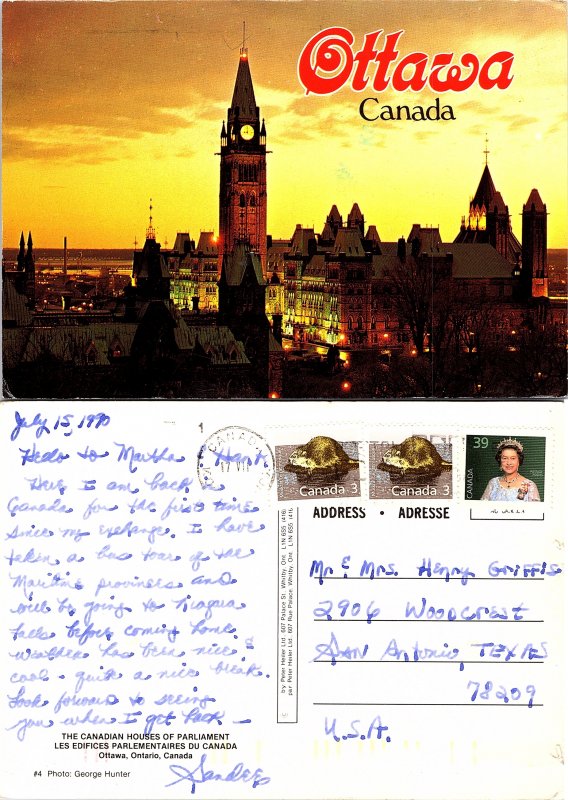 Ottawa
Canada
July 15, 1990
Hello to Martha & Hank
Here I am back in
Canada for the first time
since my exchange. I have
taken a bus tour of the
Maritime provinces and
will be going to Niagara
Falls before coming home.
Weather has been nice &
cool - quite a nice break.
Look forward to seeing
you when I get back -
Sandee
THE CANADIAN HOUSES OF PARLIAMENT
LES EDIFICES PARLEMENTAIRES DU CANADA
Ottawa, Ontario, Canada
#4 Photo: George Hunter
1
CANADA
17 VII
Canada 3
Canada 3
39
CANADA
ADDRESS • ADRESSE
by Peter Heier Ltd. 607 Palace St. Whitby, Ont. L1N 6S5 (416)
par Peter Heier Ltd. 607 Rue Palace, Whitby, Ont. L1N 6S5 (416)
Mr & Mrs. Henry Griffis
2906 Woodcrest
San Antonio, Texas
78209
U.S.A.